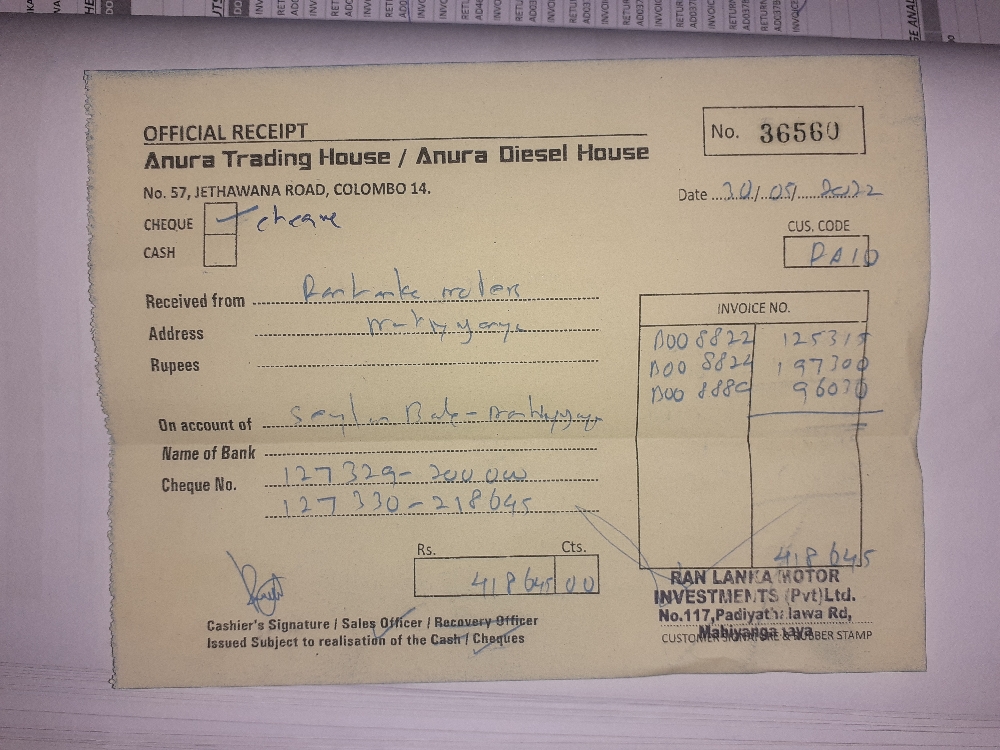 OFFICIAL RECEIPT
No. 36560
Anura Trading House / Anura Diesel House
No. 57, JETHAWANA ROAD, COLOMBO 14.
Date 30/05/2022
CHEQUE cheque
CASH
CUS. CODE
PAID
Received from Ranlanka motors
Address
Rupees
INVOICE NO.
D00 8822 125315
D00 8824 197300
96030
On account of Seylan Bank -
Name of Bank
Cheque No. 127329 - 200000
127330 - 218645
418645
Rs. Cts.
418645 00
RAN LANKA MOTOR
INVESTMENTS (Pvt)Ltd.
No.117,Padiyathalawa Rd,
Mahiyanganaya
CUSTOMER SIGNATURE & RUBBER STAMP
Cashier's Signature / Sales Officer / Recovery Officer
Issued Subject to realisation of the Cash / Cheques